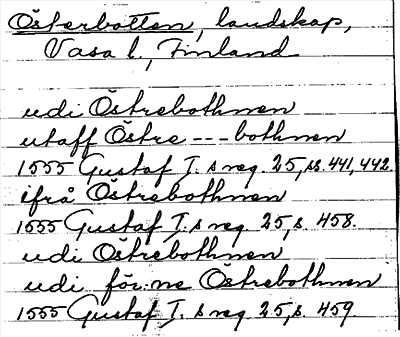 Österbotten, landskap,
Vasa l., Finland
udi Östrebothnen
utaff Östre --- bothnen
1555 Gustaf I:s reg. 25, ss. 441, 442.
ifrå Östrebothnen
1555 Gustaf I:s reg. 25, s. 458.
udi Östrebothnen
udi för:ne Östrebothnen
1555 Gustaf I:s reg. 25, s. 459.